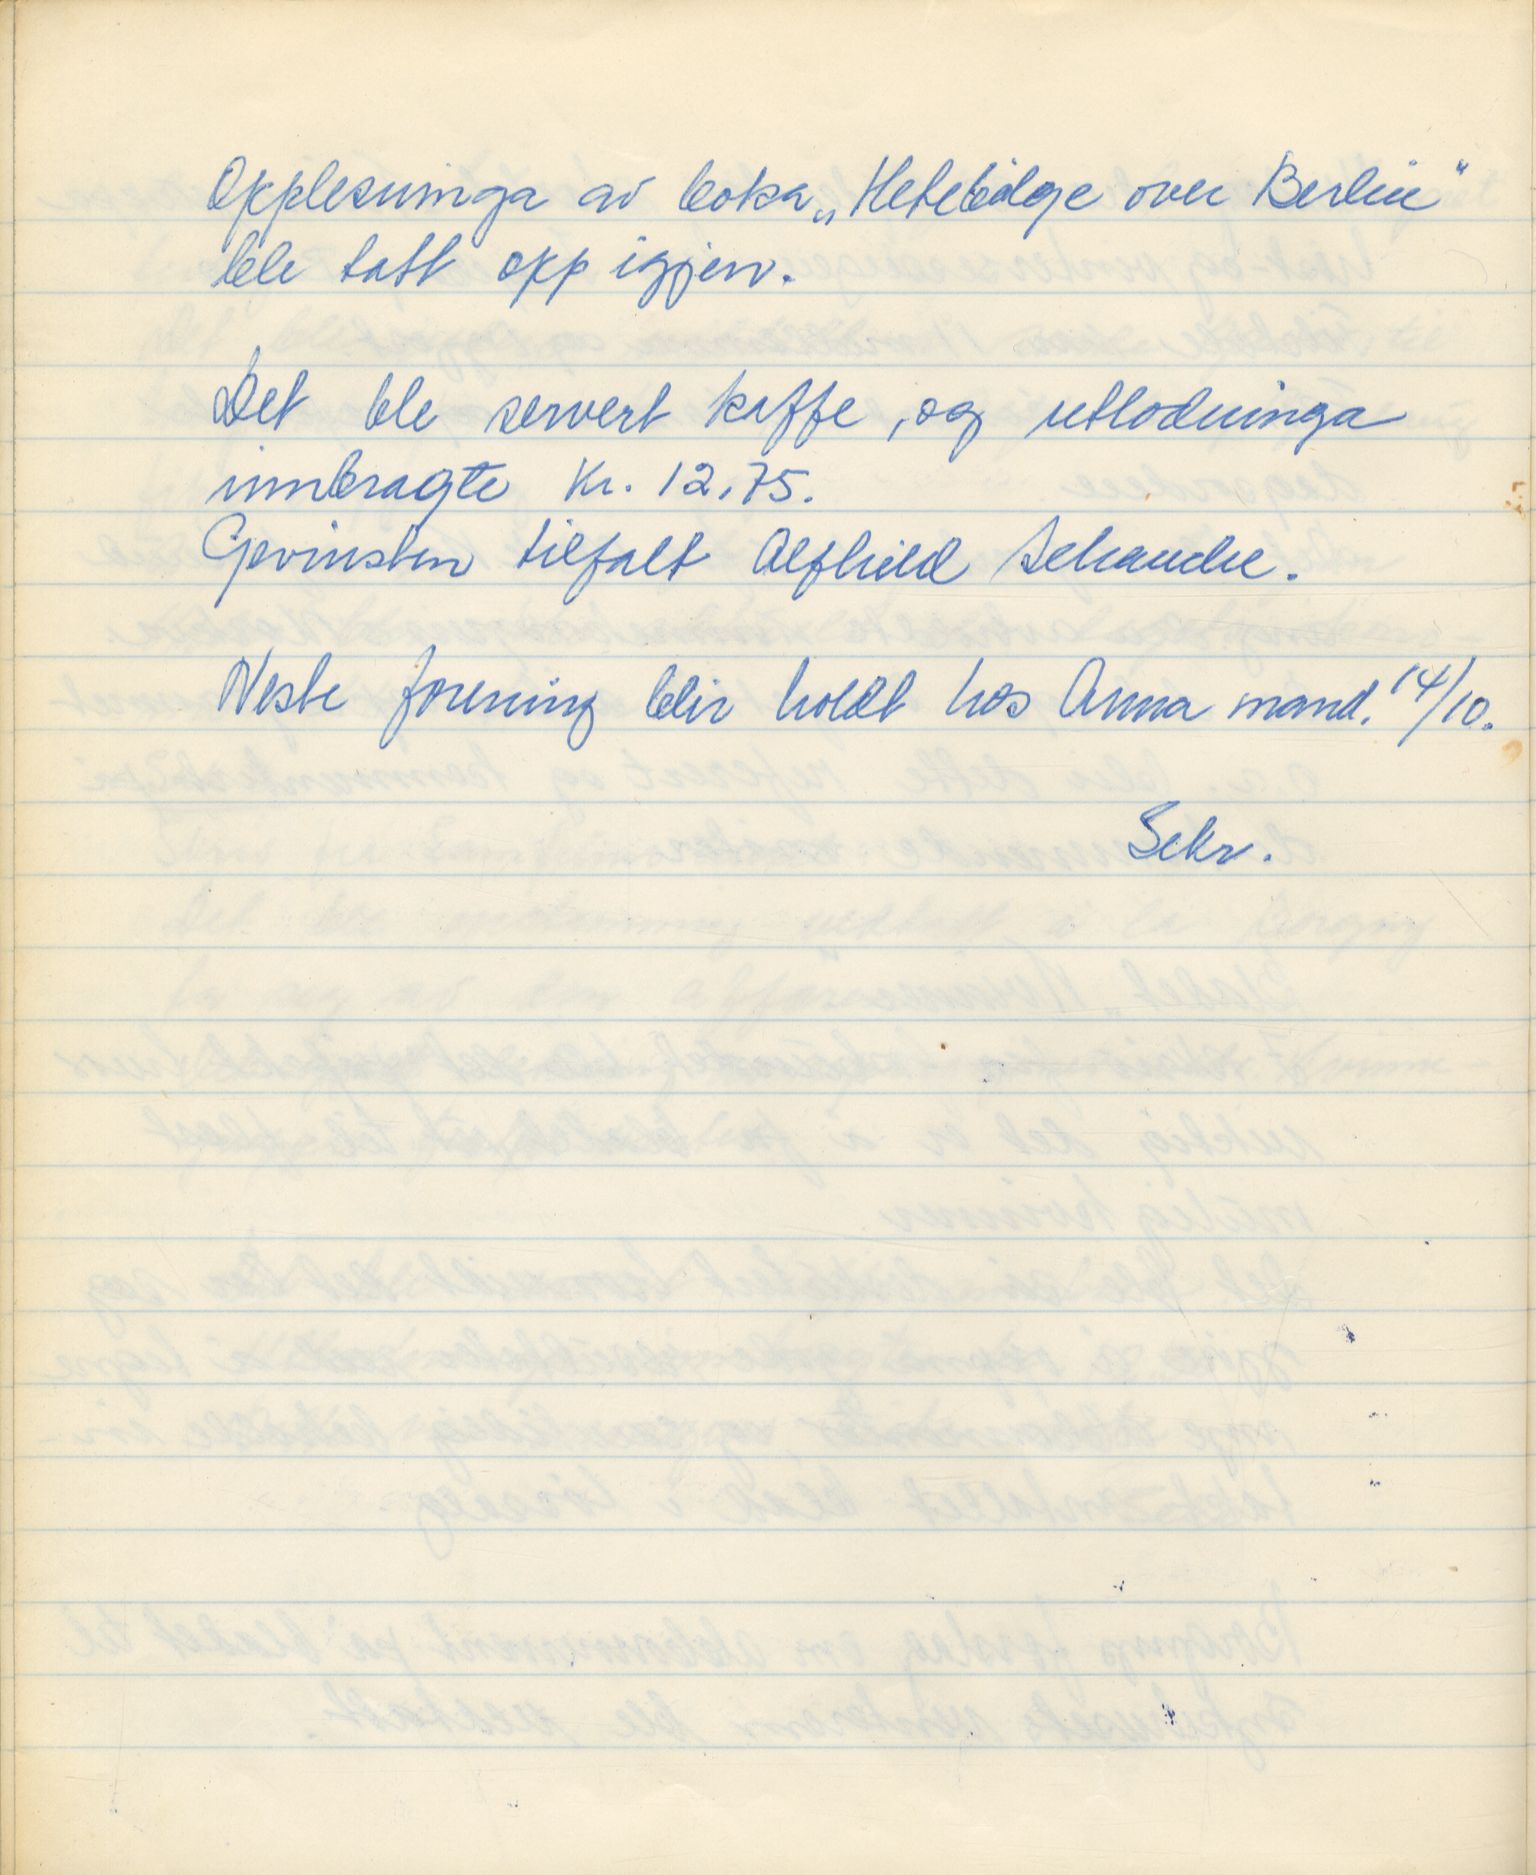 Opplesninga av boka „Hetebølge over Berlin"
ble tatt opp igjen.
Det ble servert kaffe, og utlodninga
innbragte Kr. 12,75.
Gevinsten tilfalt Alfhild
Neste forening blir holdt hos Anna mand. 14/10.
Sekr.